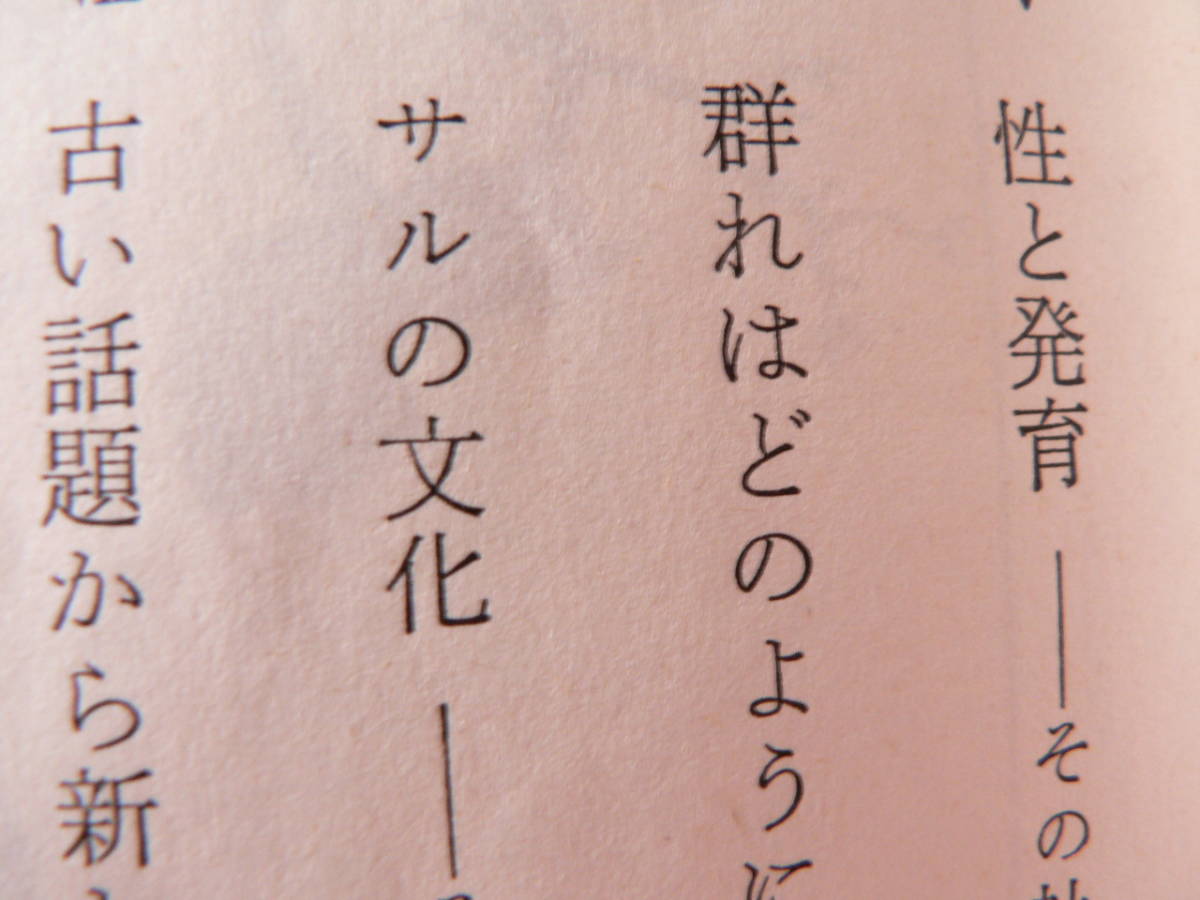 性と発育 ――その
群れはどのように
サルの文化 ――
古い話題から新